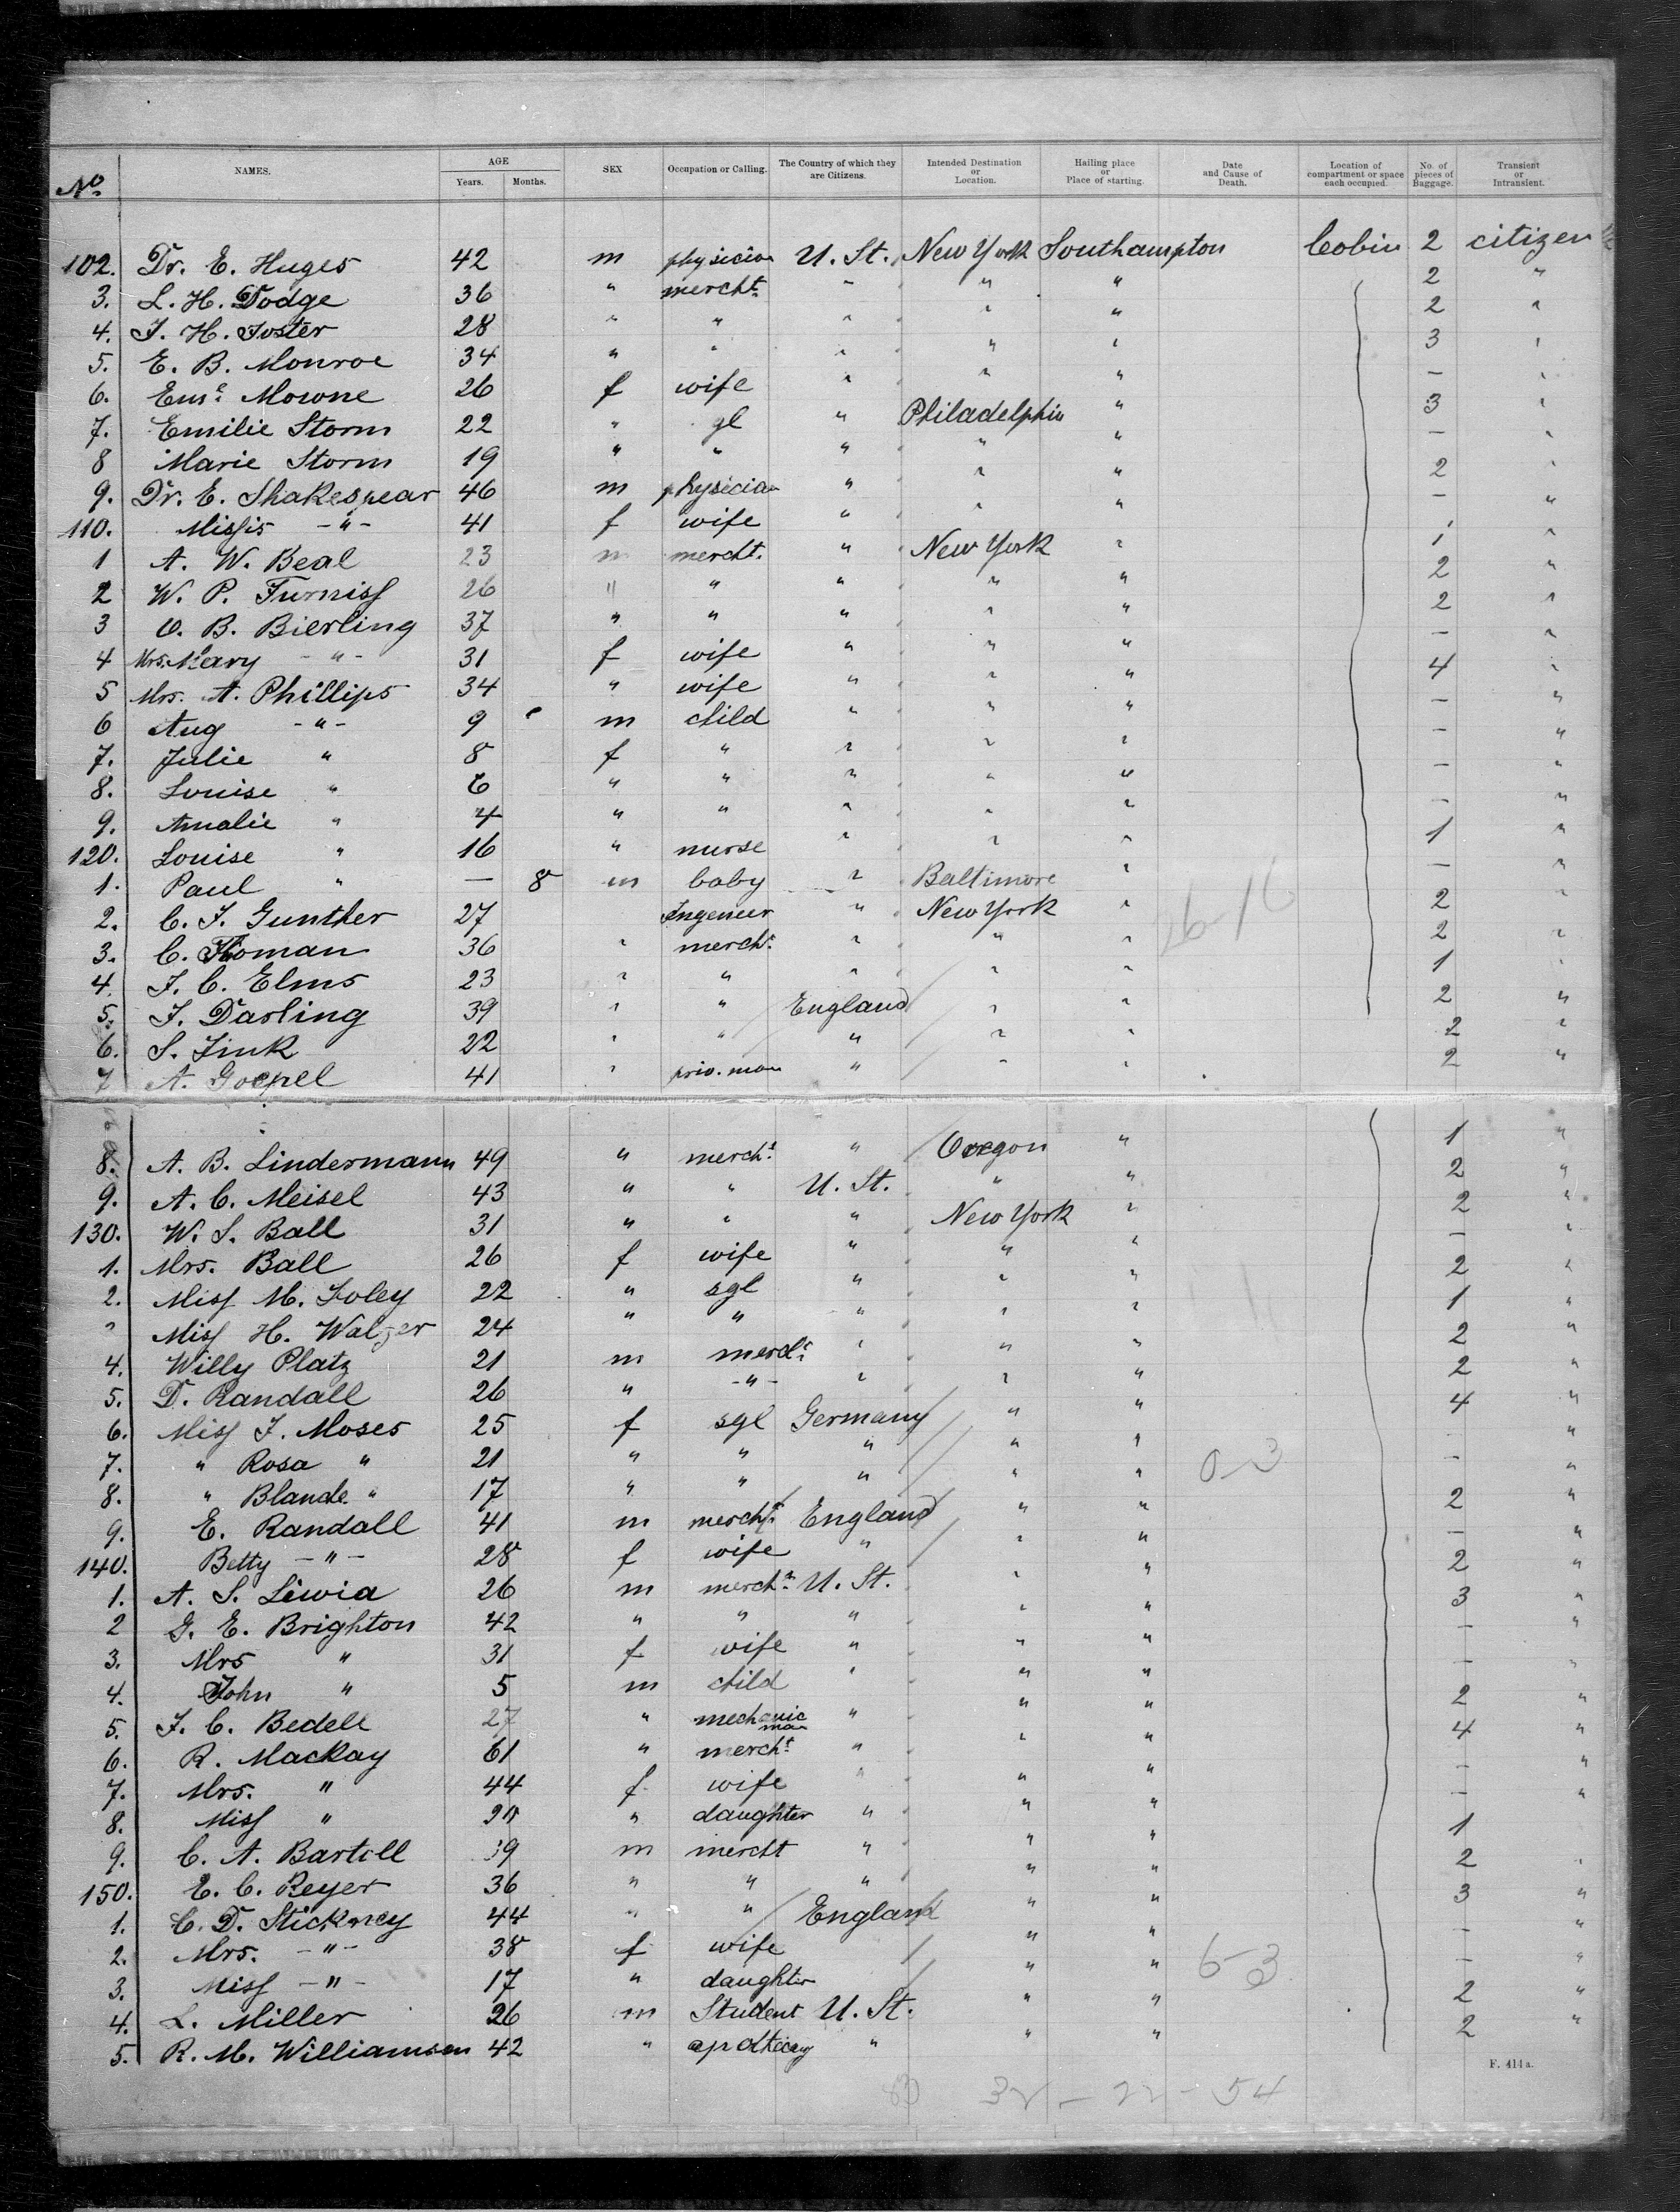 No. NAMES. AGE Years. Months. SEX Occupation or Calling. The Country of which they are Citizens. Intended Destination or Location. Hailing place or Place of starting. Date and Cause of Death. Location of compartment or space each occupied. No. of pieces of Baggage. Transient or Intransient.
102. Dr. E. Huges 42 m physician U. St. New York Southampton Cabin 2 citizen
3. L. H. Dodge 36 " mercht. " " " 2 "
4. F. H. Foster 28 " " " " " 2 "
5. E. B. Monroe 34 " " " " " 3 "
6. Em? Mowne 26 f wife " " " — "
7. Emilie Storm 22 " gl " Philadelphia " 3 "
8 Marie Storm 19 " " " " " — "
9. Dr. E. Shakespear 46 m physician " " " 2 "
110. Missis -"- 41 f wife " " " — "
1 A. W. Beal 23 m mercht. " New York " 1 "
2 W. P. Furniss 26 " " " " " 2 "
3 O. B. Bierling 37 " " " " " 2 "
4 Mrs. Mary -"- 31 f wife " " " — "
5 Mrs. A. Phillips 34 " wife " " " 4 "
6 Aug -"- 9 m child " " " — "
7. Julie " 8 f " " " " — "
8. Louise " 6 " " " " " — "
9. Amalie " 4 " " " " " — "
120. Louise " 16 " nurse " " " 1 "
1. Paul " — 8 m baby " Baltimore " — "
2. C. F. Gunther 27 Ingeneer " New York " 2 "
3. C. Homan 36 " mercht. " " " 2 "
4. F. C. Elms 23 " " " " " 1 "
5. F. Darling 39 " " England " " 2 "
6. S. Fink 22 " " " " " 2 "
7 A. Goepel 41 " priv. man " " " 2 "
8. A. B. Lindermann 49 " mercht. " Oregon " 1 "
9. A. C. Meisel 43 " " U. St. " " 2 "
130. W. S. Ball 31 " " " New York " 2 "
1. Mrs. Ball 26 f wife " " " — "
2. Miss M. Foley 22 " sgl " " " 2 "
" Miss H. Walzer 24 " " " " " 1 "
4. Willy Platz 21 m mercht. " " " 2 "
5. D. Randall 26 " -"- " " " 2 "
6. Miss F. Moses 25 f sgl Germany " " 4 "
7. " Rosa " 21 " " " " " "
8. " Blande " 17 " " " " " — "
9. E. Randall 41 m mercht. England " " 2 "
140. Betty -"- 28 f wife " " " — "
1. A. S. Lewia 26 m mercht. U. St. " " 2 "
2 G. E. Brighton 42 " " " " " 3 "
3. Mrs " 31 f wife " " " — "
4. John " 5 m child " " " — "
5. F. C. Bedell 27 " mechanic man " " " 2 "
6. R. Mackay 61 " mercht. " " " 4 "
7. Mrs. " 44 f wife " " " — "
8. Miss " daughter " " " — "
9. C. A. Bartoll 39 m mercht " " " 1
150. E. C. Reyer 36 " " " " " 2 "
1. C. D. Stickney 44 " " England " " 3 "
2. Mrs. -"- 38 f wife " " — "
3. Miss -"- 17 " daughter " " — "
4. L. Miller 26 m Student U. St. " " 2 "
5. R. M. Williamson 42 " apothecary " " " 2 "
F. 414 a.
32 - 22 - 54